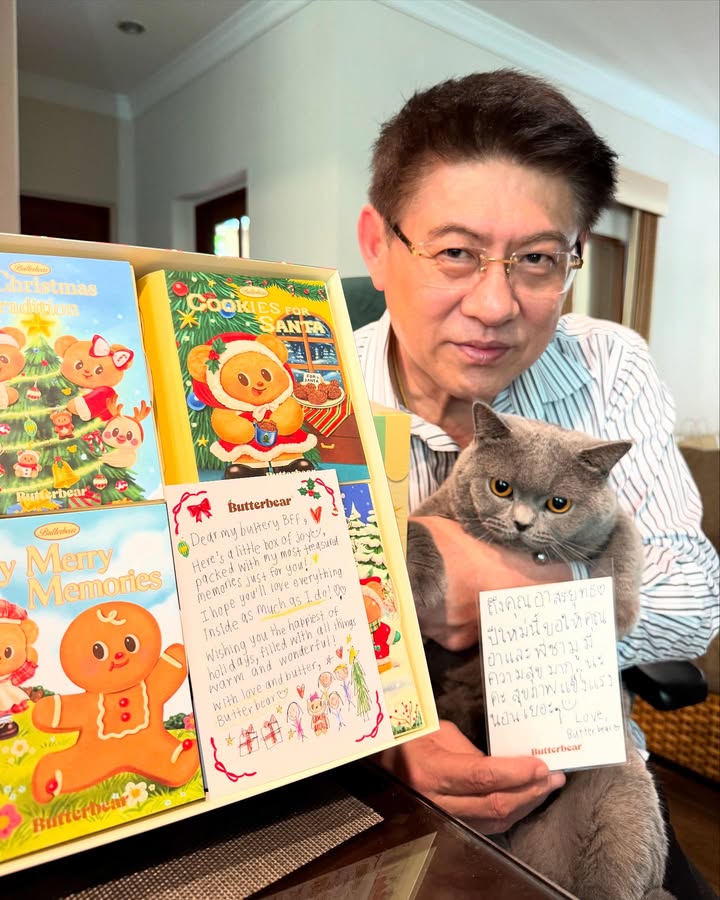 Butterbear
Christmas
Tradition
Butterbear
Butterbear
COOKIES FOR
SANTA
FOR
SANTA
Butterbear
Butterbear
Merry
Memories
Butterbear
Butterbear
Dear my buttery BFF,
Here's a little box of joyey,
packed with my most treasured
memories just for you!
I hope you'll love everything
inside as much as I do!
Wishing you the happiest of
holidays, filled with all things
warm and wonderful!
with love and butter,
Butterbear
ถึงคุณอาสรยุทธ
ปีใหม่นี้ ขอให้คุณ
อาและพี่ชามู มี
ความสุขมากๆนะ
คะ สุขภาพแข็งแรง
นอนเยอะๆ
Love,
Butterbear
Butterbear